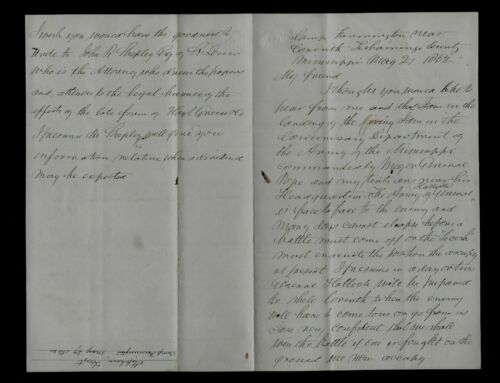 Camp Farmington near
Corinth Tishamingo County
Mississippi May 21 1862
My friend
I thought you would like to
hear from me and that I am in the
land of the living I am in the
Commissary Department of
the Army of the Mississippi
Commanded by Major General
Pope and my tents are near his
Headquarters The Army of General
Halleck
is face to face to the enemy and
many days cannot elapse before a
battle must come off or the Secesh
must evacuate the position the occupy
at present I presume in a day or two
General Halleck will be prepared
to shell Corinth & then the enemy
will have to come out or go from us
I am very confident that we shall
win the battle if one is fought on the
ground we now occupy
I wish you would have the goodness to
write to John R Shepley Esq of St Louis
who is the Attorney who drew the papers
and attends to the legal business of the
affairs of the late firm of
I presume Mr Shepley will give you
information relative when a dividend
may be expected
Stephen Hoyt
Camp Farmington May 21 1862